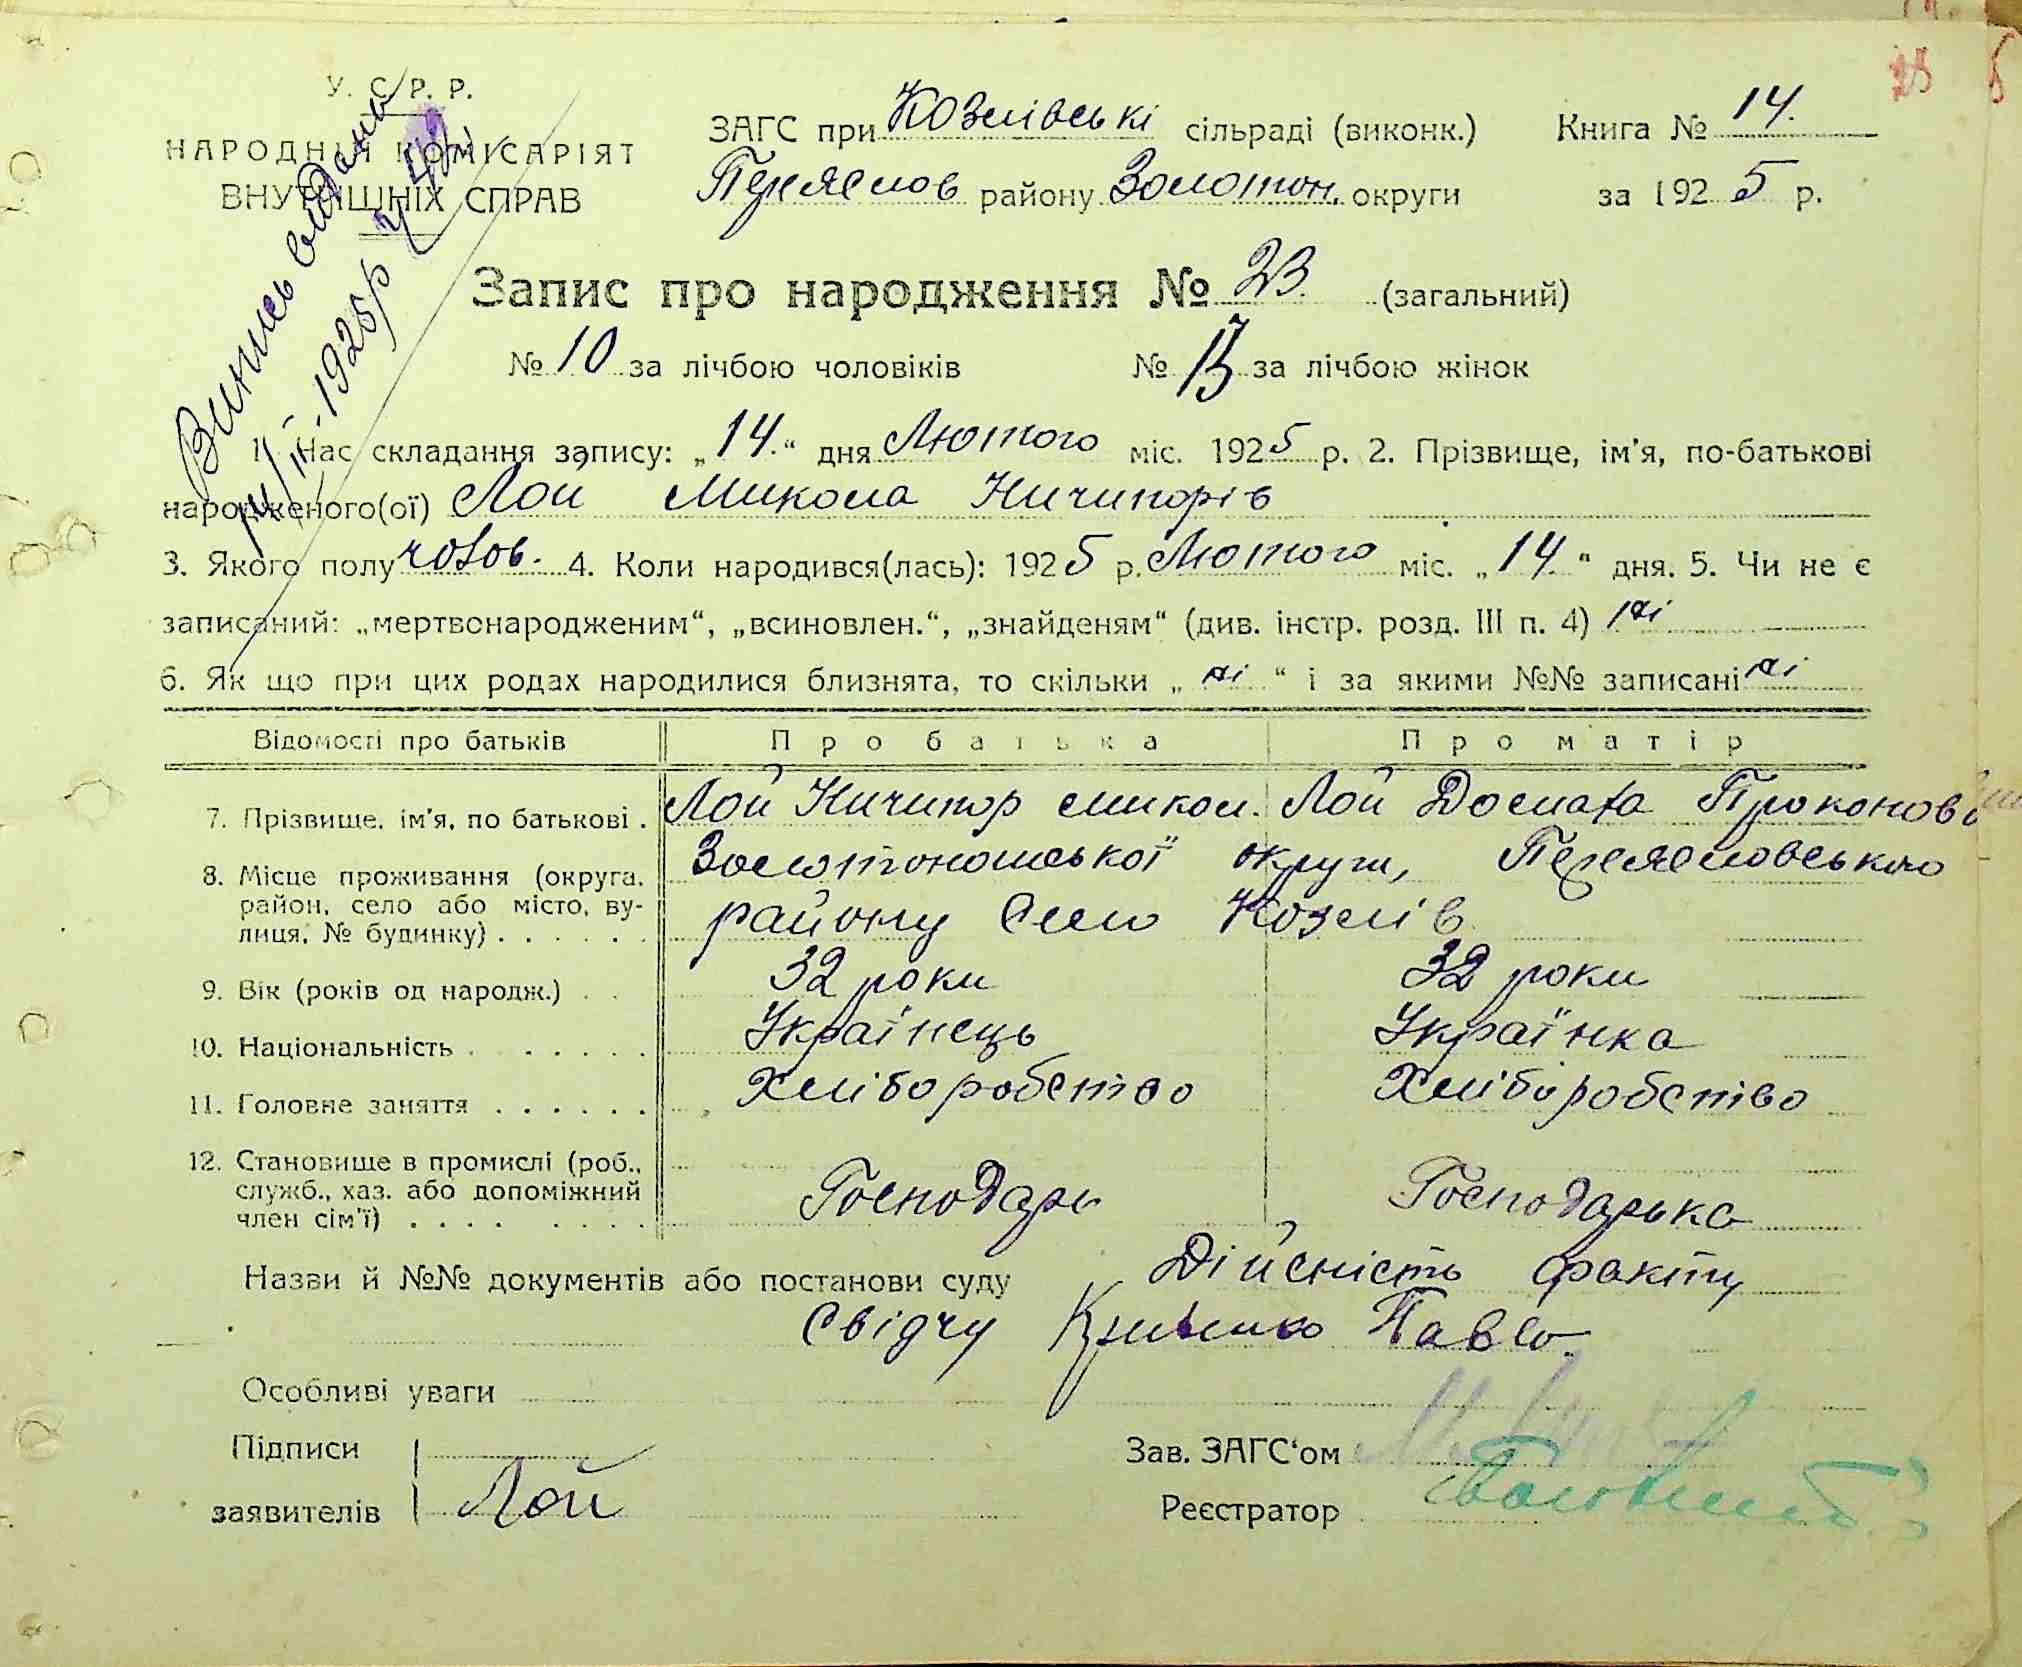 У. С. Р. Р.
НАРОДНІЙ КОМІСАРІЯТ
ВНУТРІШНІХ СПРАВ
Випись видана
14/II-1925р
ЗАГС при Козлівські сільраді (виконк.) Книга № 14.
Переяслов району Золотон. округи за 1925 р.
Запис про народження № 23. (загальний)
№ 10 за лічбою чоловіків № 13 за лічбою жінок
1. Час складання запису: „14.“ дня Лютого міс. 1925 р. 2. Прізвище, ім'я, по-батькові
народженого(ої) Лой Микола Ничипорів
3. Якого полу чолов. 4. Коли народився(лась): 1925 р. Лютого міс. „14.“ дня. 5. Чи не є
записаний: „мертвонародженим“, „всиновлен.“, „знайденям“ (див. інстр. розд. III п. 4) ні
6. Як що при цих родах народилися близнята, то скільки „ні“ і за якими №№ записані ні
Відомості про батьків Про батька Про матір
7. Прізвище, ім'я, по батькові . Лой Ничипор Микол. Лой Домаха
8. Місце проживання (округа, район, село або місто, вулиця, № будинку) . . . . . . Золотоношської округи, Переясловського
району Село Козлів
9. Вік (років од народж.) . . 32 роки 32 роки
10. Національність . . . . . . . Українець Українка
11. Головне заняття . . . . . . Хліборобство Хліборобство
12. Становище в промислі (роб., служб., хаз. або допоміжний член сім'ї) . . . . . . . . Господарь Господарька
Назви й №№ документів або постанови суду Дійсність факту
свідчу Павло
Особливі уваги
Підписи
заявителів Лой
Зав. ЗАГС‘ом
Реєстратор